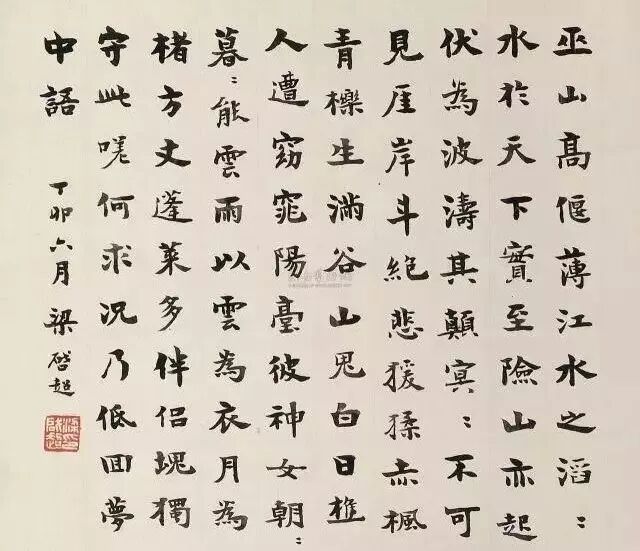 巫山髙偃薄江水之滔〻
水於天下實至險山亦起
伏為波濤其顛冥〻不可
見厓岸斗絕悲猨猱赤楓
青櫟生滿谷山鬼白日樵
人遭窈窕陽臺彼神女朝〻
暮〻能雲雨以雲為衣月為
楮方丈蓬萊多伴侶塊獨
守此嗟何求況乃低回夢
中語 丁卯六月梁啓超